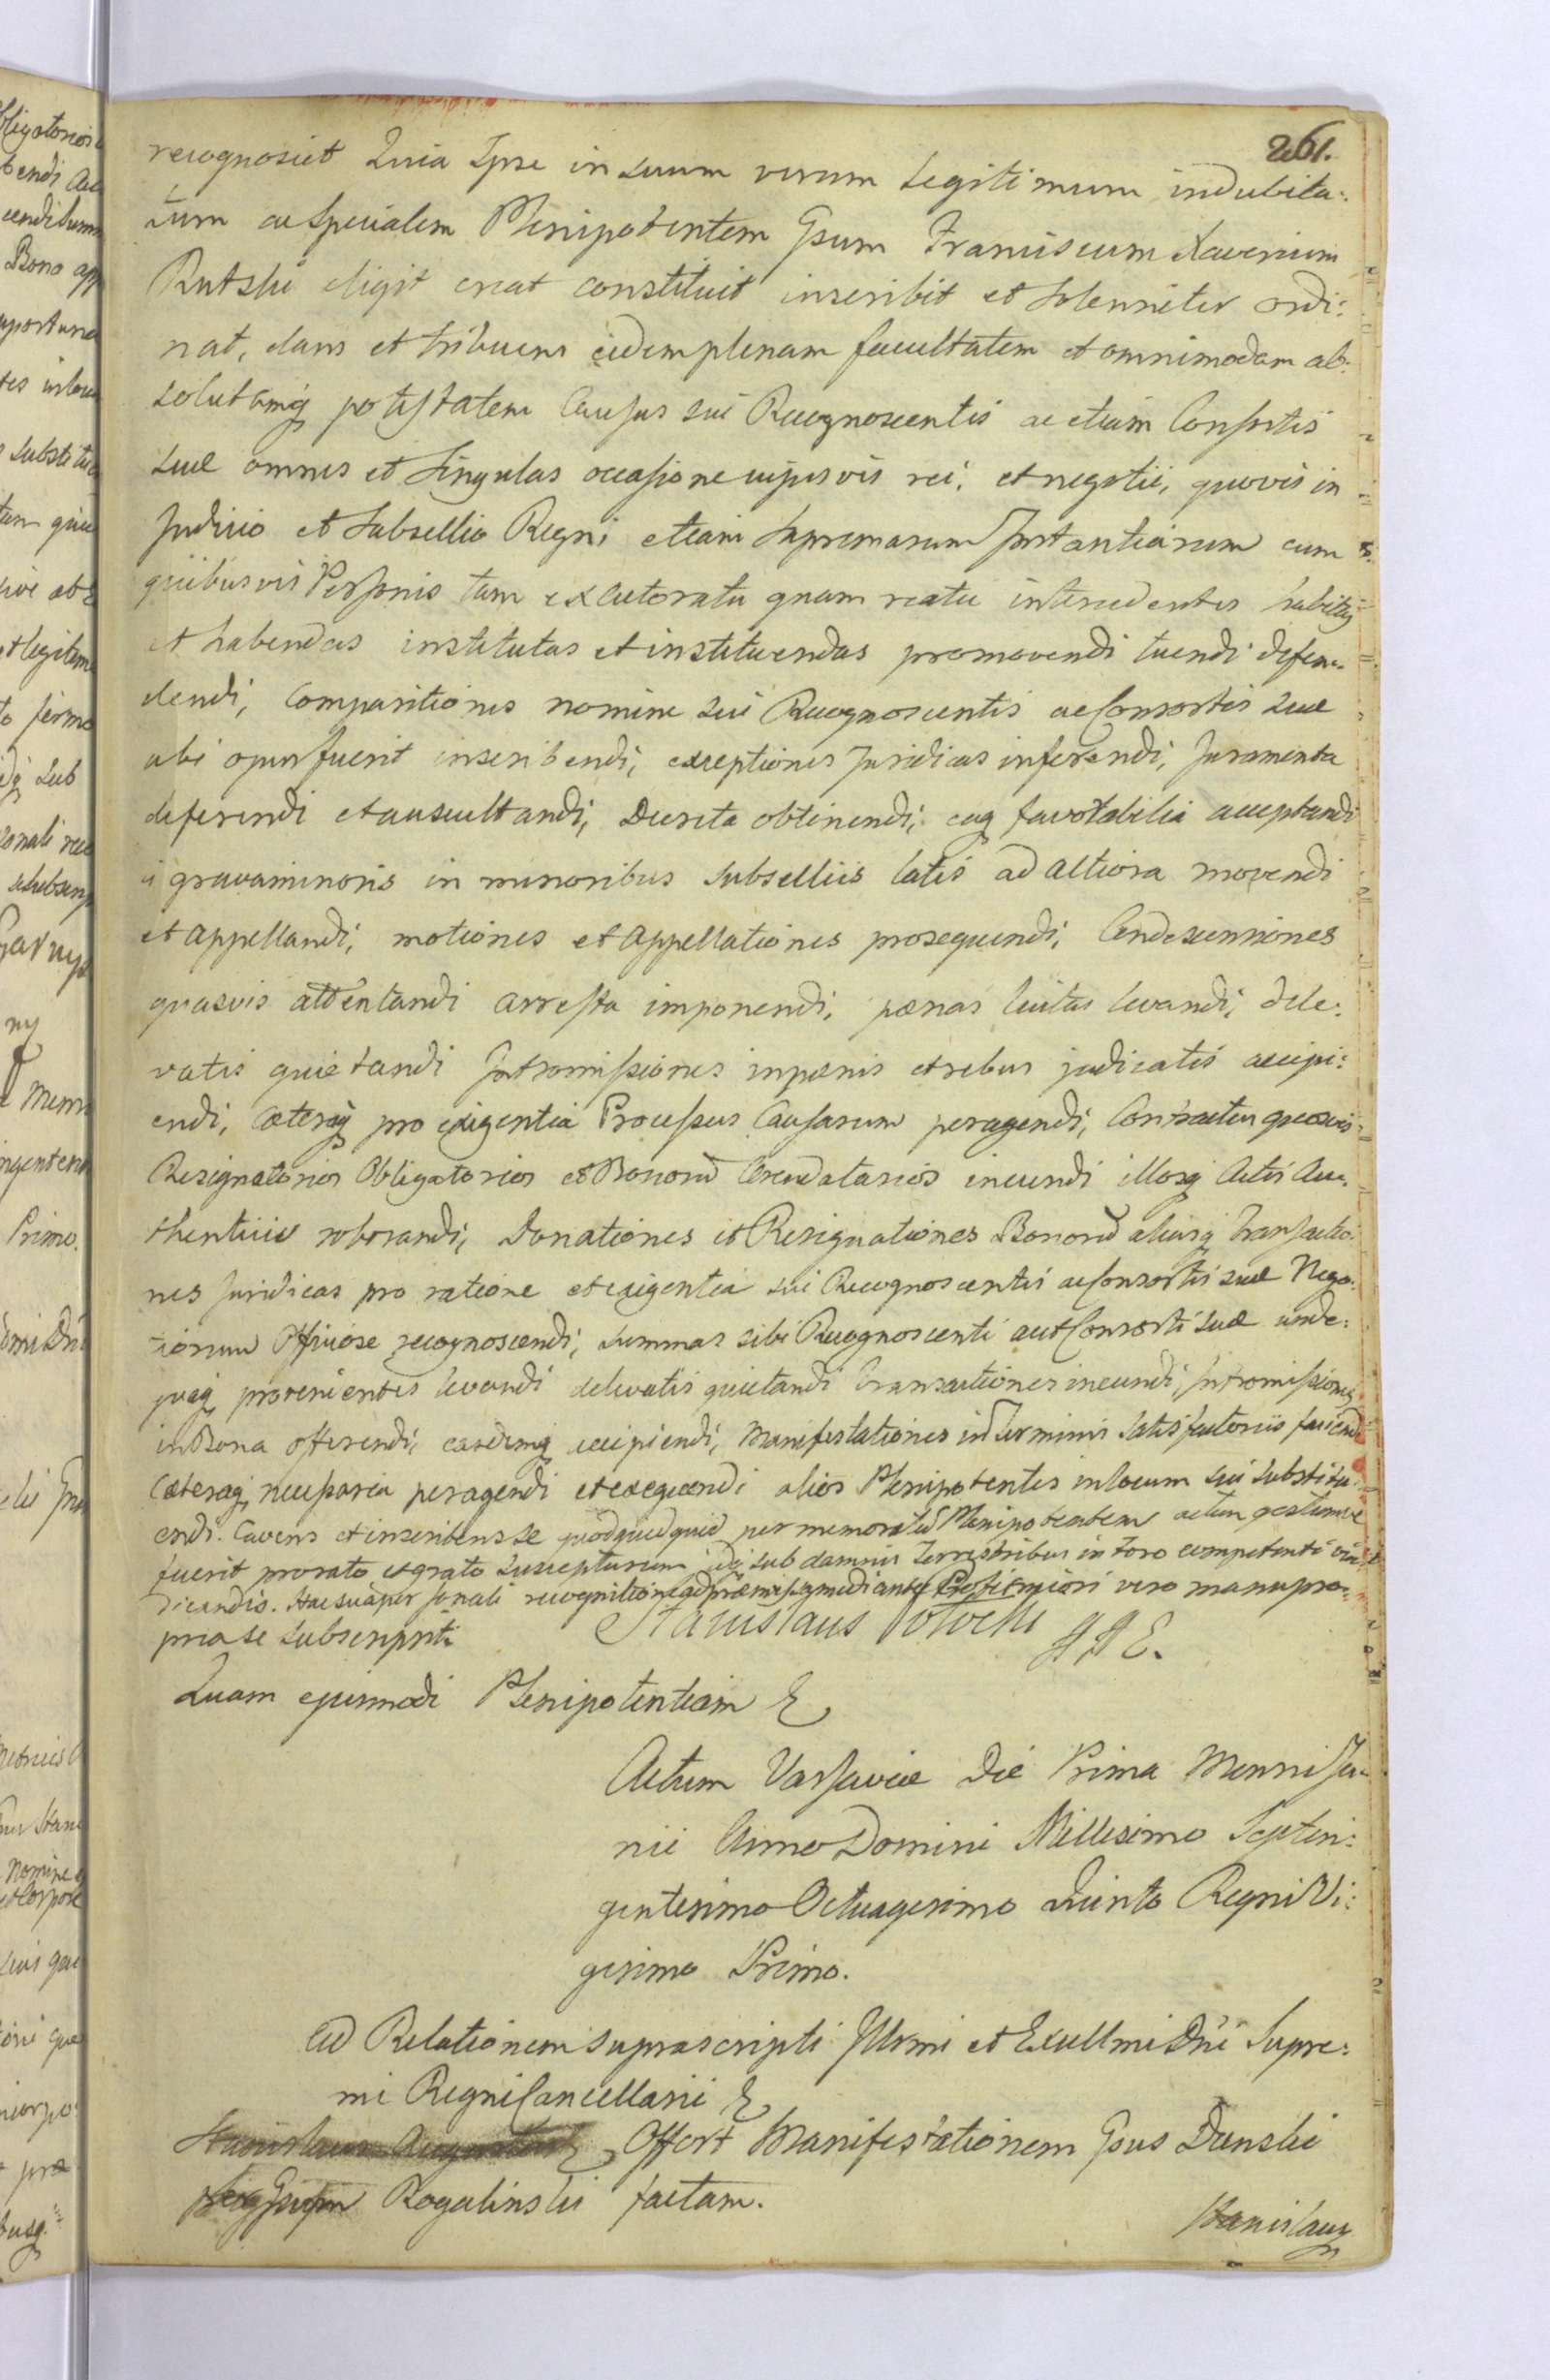 261.
recognoscit Quia Ipse in suum verum Legitimum indubita:
tum ac Specialem Plenipotentem Gsum Franciscum Xaverium
Rutski eligit creat constituit inscribit et Solenniter ordi:
nat, dans et tribuens eidem plenam facultatem et omnimodam ab:
solutamq potestatem Causas sui Recognoscentis ac etiam Consortis
suæ omnes et Singulas occasione cujusvis rei, et negotii, quovis in
Judicio et Subsellio Regni etiam Supremarum Instantiarum cum
quibusvis Personis tam ex actoratu quam reatu intercedentes habitas
et habendas institutas et instituendas promovendi tuendi defen-
dendi, Comparitiones nomine sui Recognoscentis ac Consortis suæ
ubi opus fuerit inscribendi, exceptiones Juridicas inferendi, Juramenta
deferendi et auscultandi, Decreta obtinendi, eaq favorabilia acceptandi
gravaminoris in minoribus subselliis latis ad altiora movendi
et appellandi, motiones et appellationes prosequendi, Condescensiones
quasvis attentandi arresta imponendi, pænas luitas levandi, de le:
vatis quietandi Intromissiones in pænis et rebus judicatis accipi:
endi, Cæteraq pro exigentia Processus Causarum peragendi, Contractus quosvis
Resignatorios Obligatorios et Bonorū Arendatarios ineundi illosq Actis Au-
thenticis roborandi, Donationes et Resignationes Bonorū aliasq Transactio:
nes Juridicas pro ratione et exigentia sui Recognoscentis ac Consortis suæ Nego:
tiorum Officiose recognoscendi, summas sibi Recognoscenti aut Consorti suæ unde:
quaq provenientes levandi de levatis quietandi Transactiones ineundi, Intromissiones
in Bona offerendi, easdemq accipiendi, Manifestationes in Terminis Satisfactoriis faciendi
Cæteraq necessaria peragendi et exequendi alios Plenipotentes in locum sui substitu:
endi. Cavens et inscribens se quod quidquid per memoratū Plenipotentem actum gestumve
fuerit pro rato et grato suscepturum idq sub damnis terrestribus in foro competenti vin
dicandis. Hac sua personali recognitione ad præmissa mediante Profirmiori vero manu pro:
pria se subscripsit
Stanislaus Potocki G A E.
Quam ejusmodi Plenipotentiam &
Actum Varsaviæ Die Prima Mensis Ju-
nii Anno Domini Millesimo Septin:
gentesimo Octuagesimo Quinto Regni Vi:
gesimo Primo.
Ad Relationem suprascripti Illrmi et Excellmi Dñi Supre:
mi Regni Cancellarii &
Offert Manifestationem Gsus Dunski
Rogalinski factam.
Stanislaus